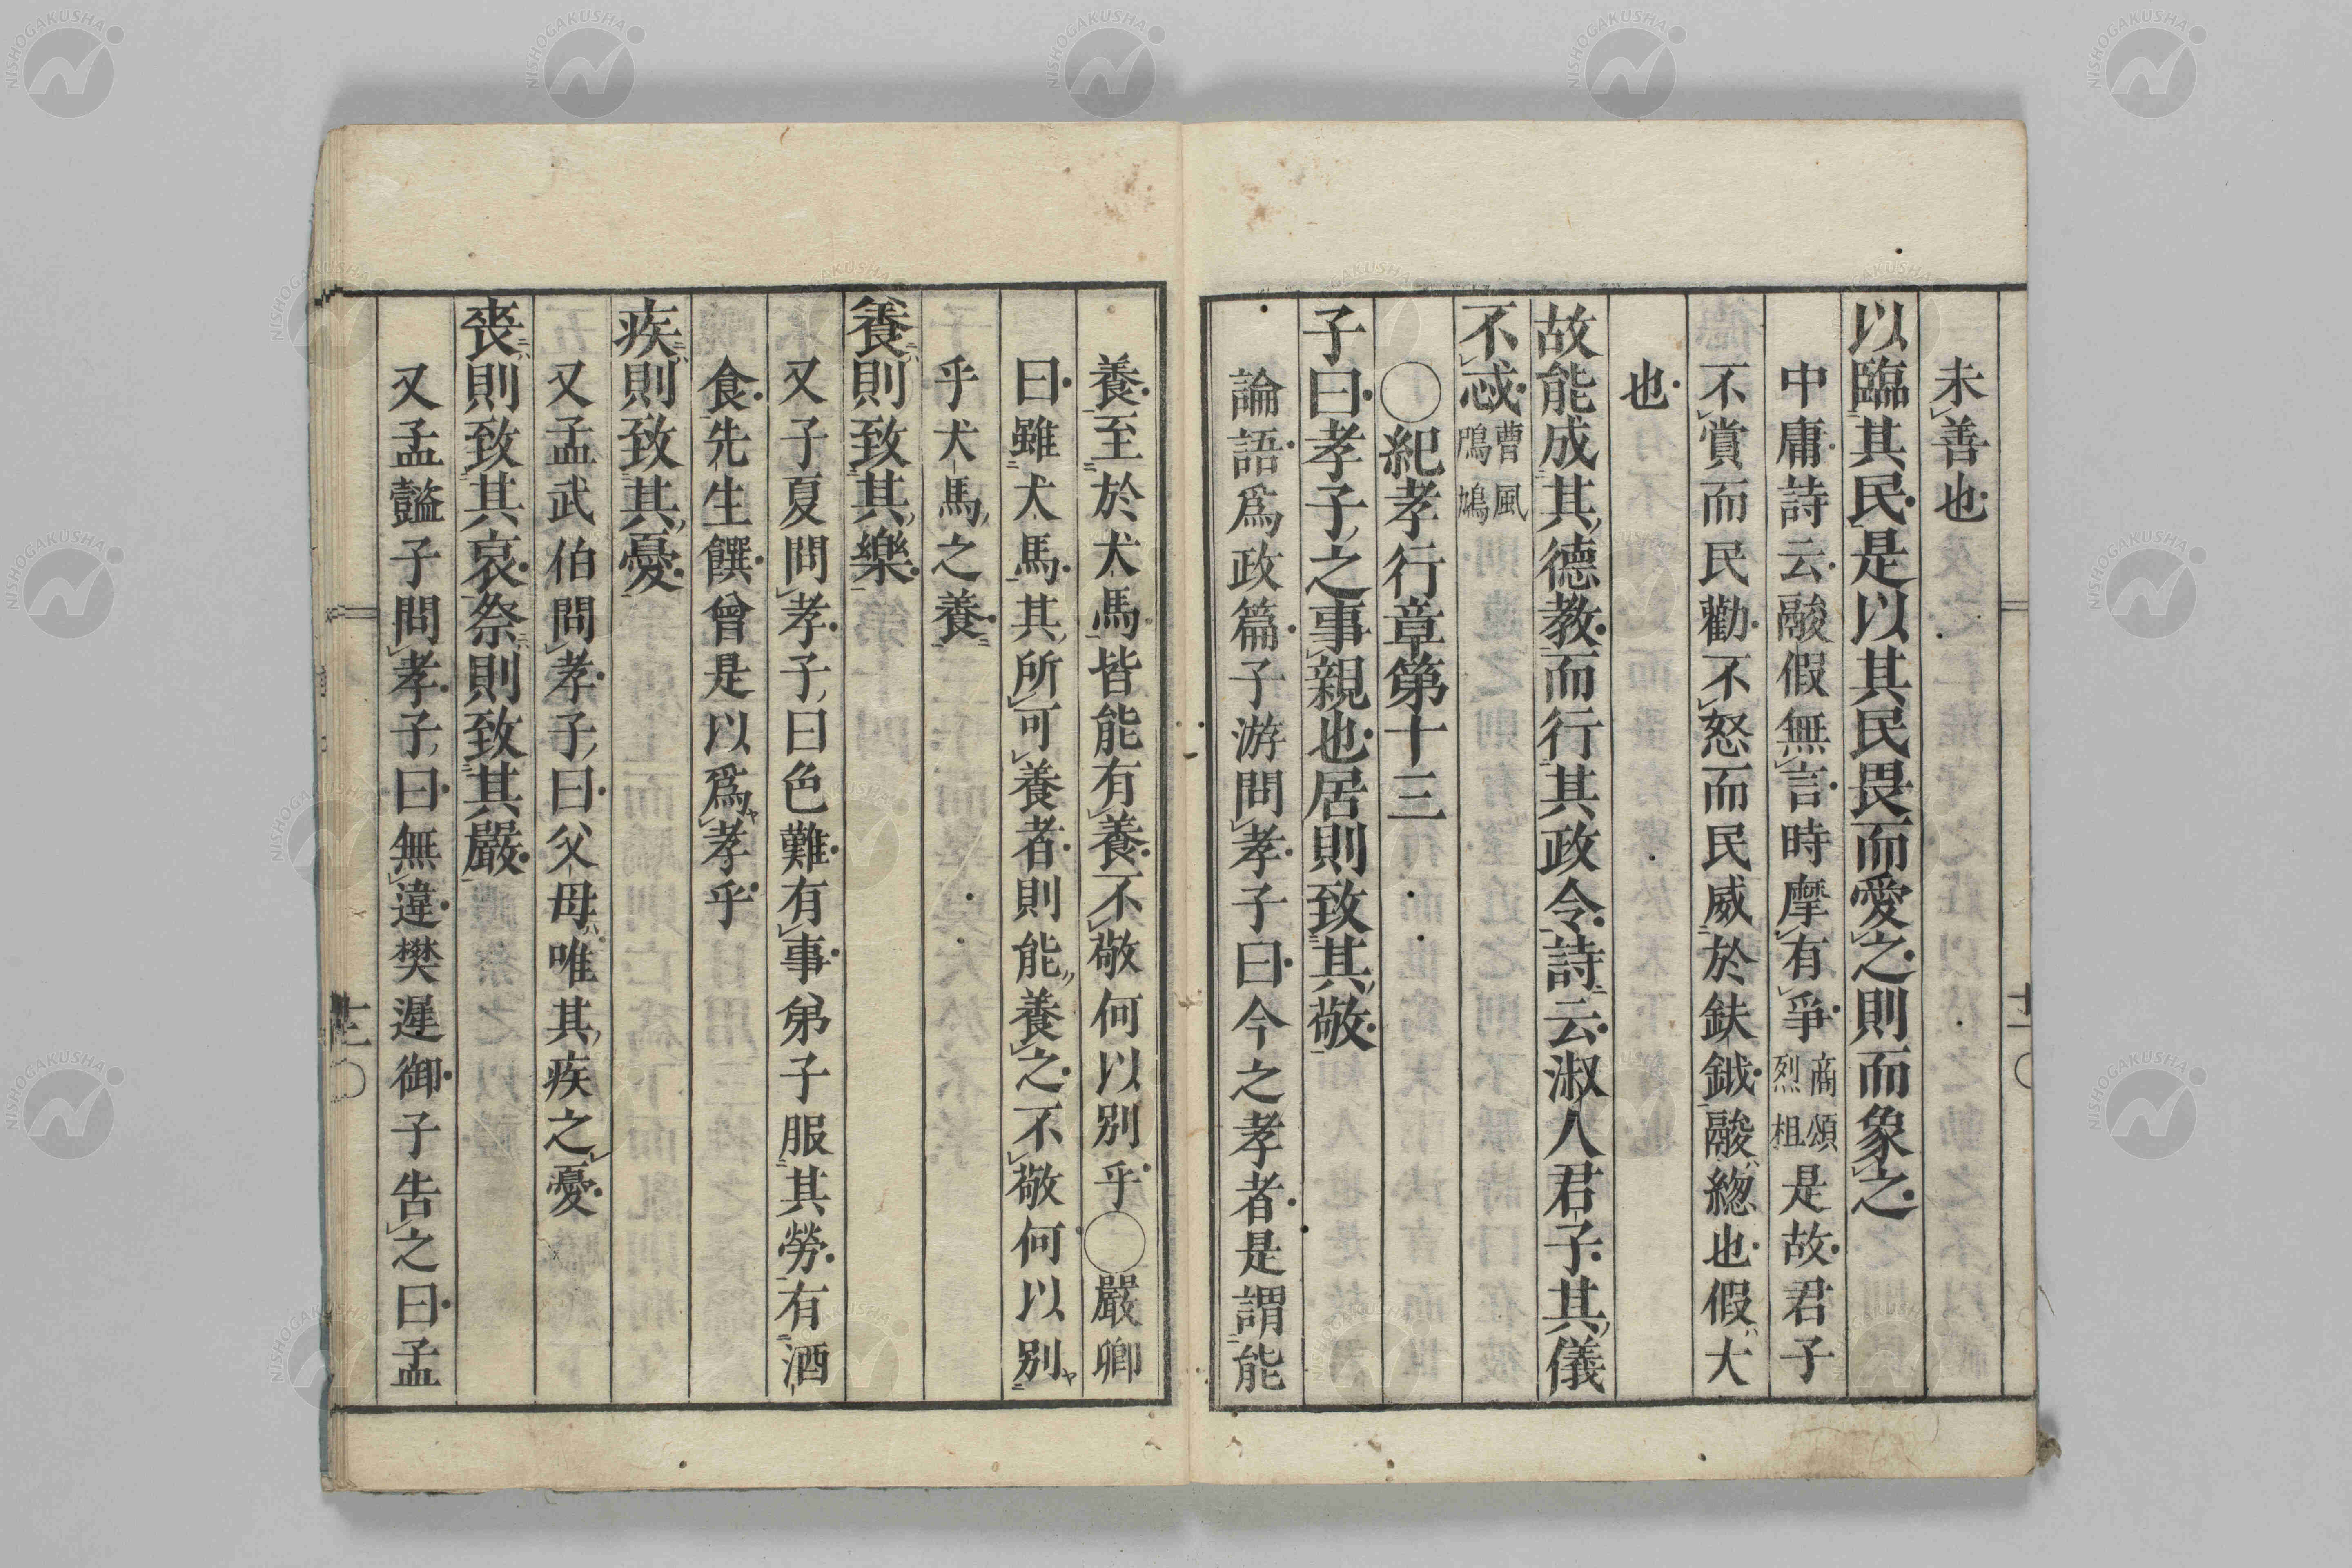 未善也
以臨其民是以其民畏而愛之則而象之
中庸詩云鬷假無言時靡有爭商頌烈祖是故君子
不賞而民勸不怒而民威於鈇鉞鬷緫也假大
也
故能成其德教而行其政令詩云淑人君子其儀
不忒曹風鳲鳩
○紀孝行章第十三
子曰孝子之事親也居則致其敬
論語爲政篇子游問孝子曰今之孝者是謂能
養至於犬馬皆能有養不敬何以別乎○嚴卿
曰雖犬馬其所可養者則能養之不敬何以別
乎犬馬之養
養則致其樂
又子夏問孝子曰色難有事弟子服其勞有酒
食先生饌曾是以爲孝乎
疾則致其憂
又孟武伯問孝子曰父母唯其疾之憂
喪則致其哀祭則致其嚴
又孟懿子問孝子曰無違樊遲御子告之曰孟
NISHOGAKUSHA